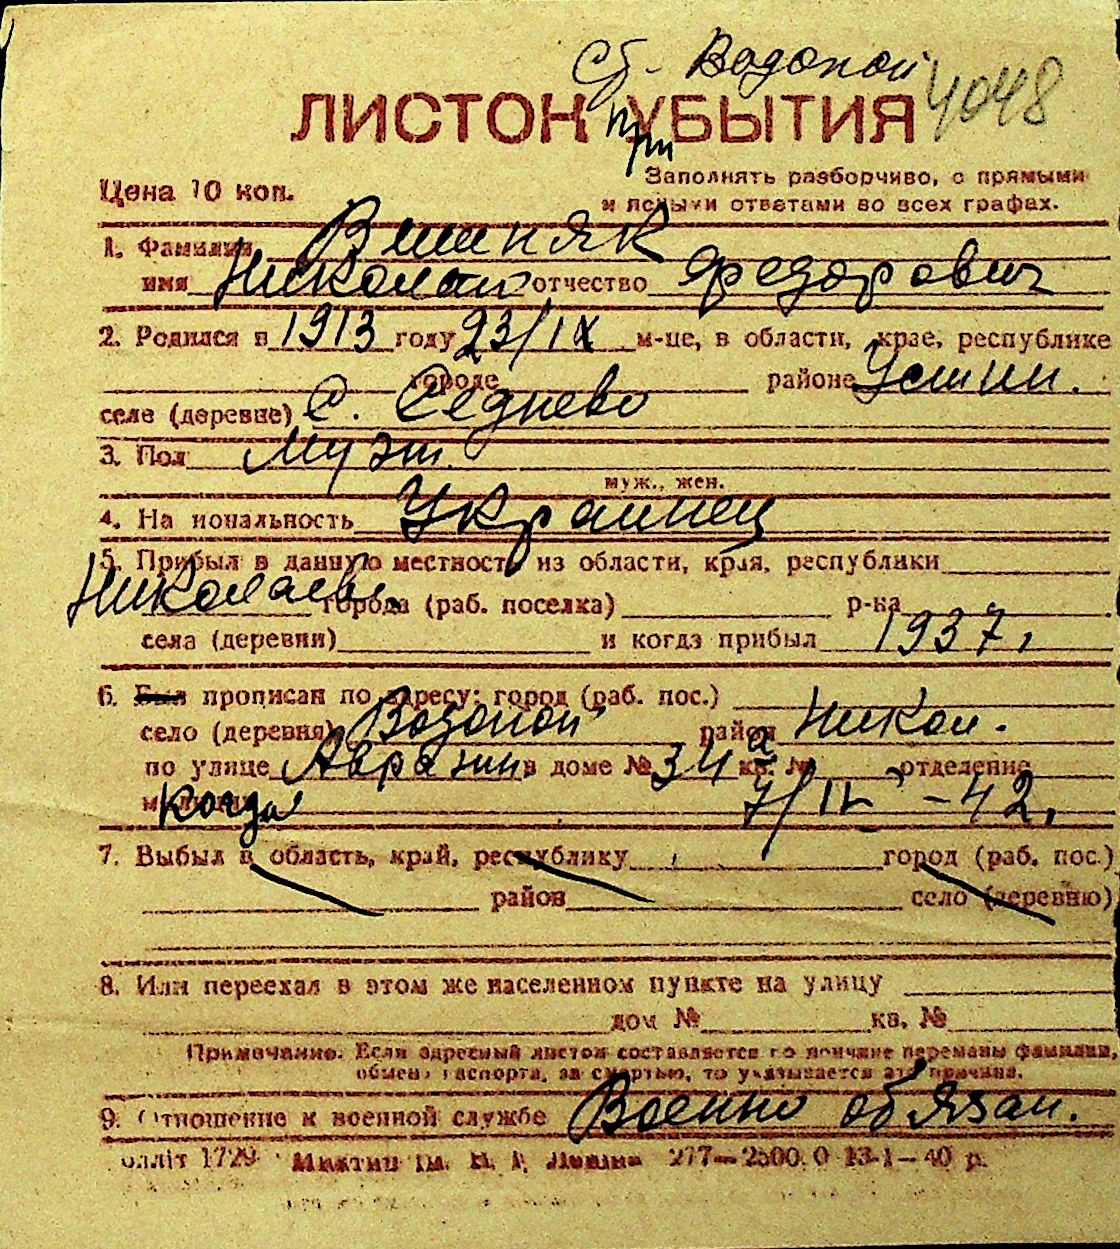 Сб. Водопой
ЛИСТОК УБЫТИЯ 4048
при
Заполнять разборчиво, с прямыми
Цена 10 коп. и ясными ответами во всех графах.
1. Фамилия Вишняк
имя Николай отчество Федорович
2. Родился в 1913 году 23/IX м-це, в области, крае, республике
городе районе
селе (деревне) С. Седнево
3. Пол Муж.
муж., жен.
4. Национальность Украинец
5. Прибыл в данную местность из области, края, республики
Николаевь города (раб. поселка) р-ка
села (деревни) и когда прибыл 1937,
6. Был прописан по адресу: город (раб. пос.)
село (деревня) Водопой район Никол.
по улице в доме № 34а кв. № отделение
милиции когда 7/IV - 42,
7. Выбыл в область, край, республику город (раб. пос.)
район село (деревню)
8. Или переехал в этом же населенном пункте на улицу
дом № кв. №
Примечание. Если адресный листок составляется по причине перемены фамилии,
обмена паспорта, за смертью, то указывается эта причина.
9. Отношение к военной службе Военно обязан.
олліт 1729 277—2500.0 13-1—40 р.